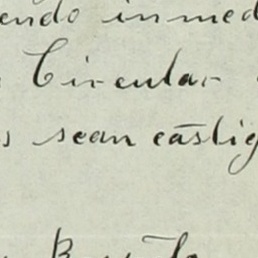 endo inmed
Circular
s sean castig